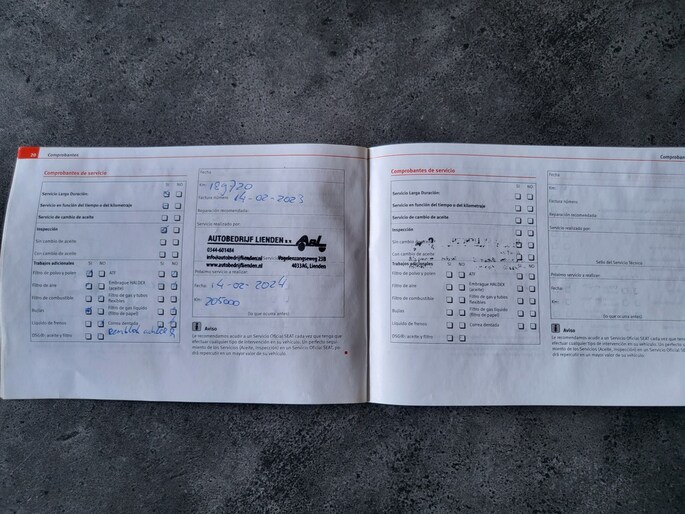 20 Comprobantes
Comprobantes de servicio
SI NO
Servicio Larga Duración:
Servicio en función del tiempo o del kilometraje
Servicio de cambio de aceite
Inspección
Sin cambio de aceite:
Con cambio de aceite:
Trabajos adicionales SI NO SI NO
Filtro de polvo y polen ATF
Filtro de aire Embrague HALDEX (aceite)
Filtro de combustible Filtro de gas y tubos flexibles
Bujías Filtro de gas líquido (filtro de papel)
Líquido de frenos Correa dentada
DSG®: aceite y filtro
Fecha:
Km: 189720
Factura número 14-02-2023
Reparación recomendada:
Servicio realizado por:
AUTOBEDRIJF LIENDEN B.V. ABL
0344-601484
info@autobedrijflienden.nl Vogelenzangseweg 23B
www.autobedrijflienden.nl 4033AG, Lienden
Próximo servicio a realizar:
Fecha: 14-02-2024
Km: 205000
(lo que ocurra antes)
Aviso
Le recomendamos acudir a un Servicio Oficial SEAT cada vez que tenga que
efectuar cualquier tipo de intervención en su vehículo. Un perfecto segui-
miento de los Servicios (Aceite, Inspección) en un Servicio Oficial SEAT, po-
drá repercutir en un mayor valor de su vehículo.
Comprobantes de servicio
SI NO
Servicio Larga Duración:
Servicio en función del tiempo o del kilometraje
Servicio de cambio de aceite
Inspección
Sin cambio
Con cambio de aceite
Trabajos adicionales
Filtro de polvo y polen ATF
Filtro de aire Embrague HALDEX (aceite)
Filtro de combustible Filtro de gas y tubos flexibles
Bujías Filtro de gas líquido (filtro de papel)
Líquido de frenos Correa dentada
DSG®: aceite y filtro
Fecha:
Km:
Factura número
Reparación recomendada:
Servicio realizado por:
Sello del Servicio Técnico
Próximo servicio a realizar:
Fecha:
Km:
(lo que ocurra antes)
Aviso
Le recomendamos acudir a un Servicio Oficial SEAT
efectuar cualquier tipo de intervención en su vehículo
miento de los Servicios (Aceite, Inspección) en un
drá repercutir en un mayor valor de su vehículo.